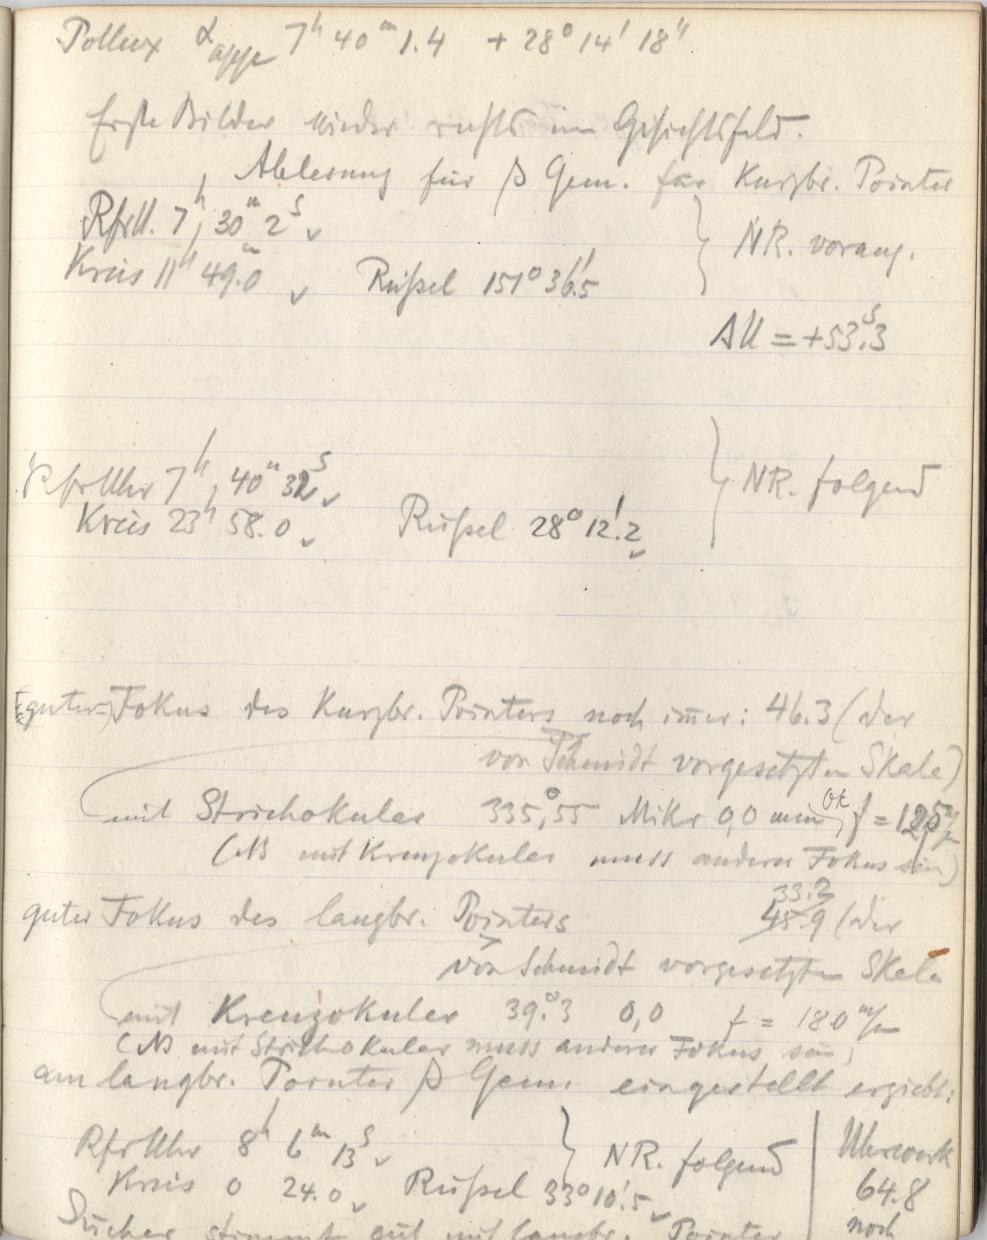 Pollux α app 7h 40m 1.4 + 28° 14' 18"
Erste Bilder wieder rechts im Gesichtsfeld.
Ablesung für β Gem. für Kurzbr. Pointer
Rfrll. 7h, 30m 2s
NR. vorang.
Kreis 11h 49.m0 Rüssel 151° 36.'5
ΔU = +53.s3
RfrUhr 7h, 40m 32s
NR. folgend
Kreis 23h 58.0 Rüssel 28° 12.'2
(guter) Fokus des Kurzbr. Pointers noch im̄er: 46.3 (der
von Schmidt vorgesetzten Skale)
mit Strichokular 335,°55 Mikr 0,0 Ok f = 125 m/m
(NB mit Kreuzokular muss anderer Fokus sein)
33.2
guter Fokus des langbr. Pointers 48.9 (der
von Schmidt vorgesetzten Skale
mit Kreuzokular 39.°3 0,0 f = 180 m/m
(NB mit Strichokular muss anderer Fokus sein)
am langbr. Pointer β Gem eingestellt ergiebt:
RfrUhr 8h 6m 13s
NR. folgend
Uhrwerk
Kreis 0 24.0 Rüssel 33° 10.'5
64.8
Sucher stimmt gut mit langbr. Pointer
noch